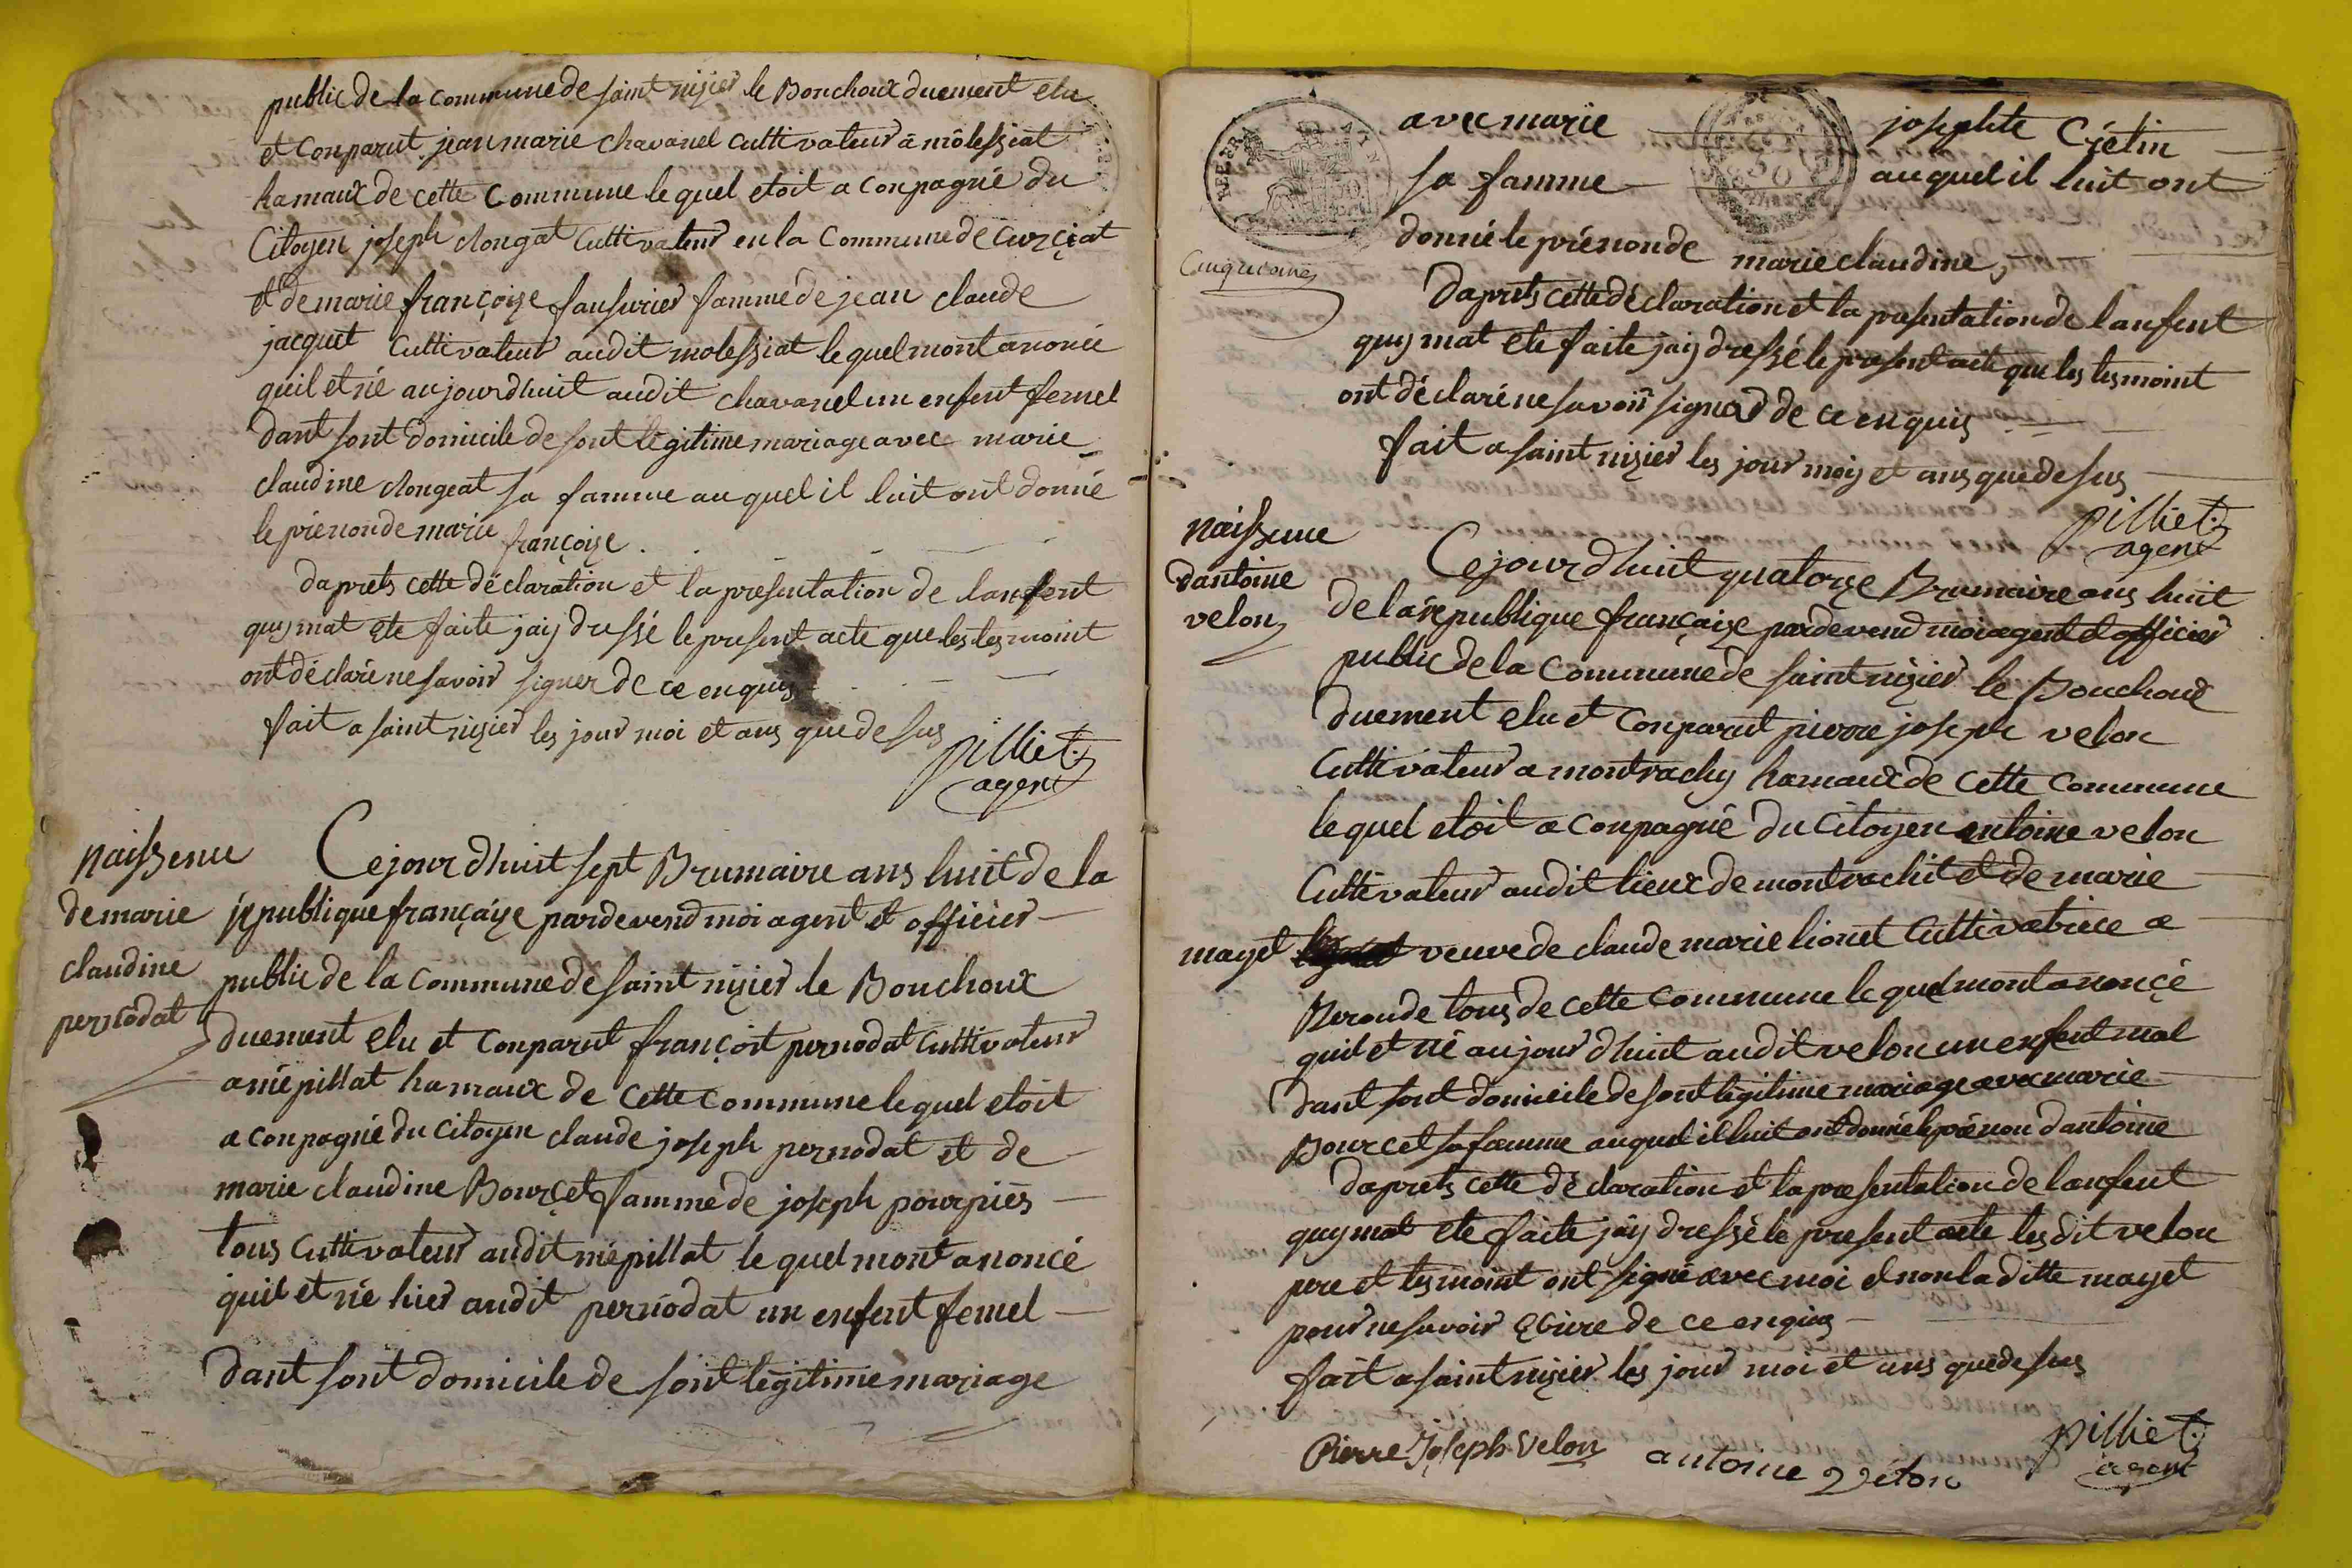 public de la commune de saint nizier le Bouchoux duement elu
et conparut jean marie chavanel cultivateur a molessiat
hamaux de cette commune le quel etoit a conpagné du
Citoyen joseph clongat Cultivateur en la Commune de Curciat
et de marie françoize fausurier famme de jean claude
jacquet Cultivateur audit molessiat le quel mont anoncé
quil et né aujourdhuit audit chavanel un enfent femel
dant sont domicile de sont légitime mariage avec marie
claudine clongeat sa famme au quel il luit ont donné
le prénon de marie françoize.
daprets cette déclaration et la présentation de lanfent
quy mat ete faite jaij dressé le present acte que les tesmoint
ont déclaré ne savoir signer de ce enquis
fait a saint nizier les jour moi et ans que desus
pilliet
agent
Naissence
de marie
claudine
pernodat
Cejourdhuit sept Brumaire ans huit de la
republique françaize pardevend moi agent et officier
public de la commune de saint nizier le Bouchoux
duement elu et Conparut françoit pernodat Cultivateur
a mépillat hamaux de Cette commune le quel etoit
a conpagné du Citoyen claude joseph pernodat et de
marie claudine Bourcet famme de joseph pourpiés
tous Cultivateur audit mépillat le quel mont anoncé
quil et né hier audit pernodat un enfent femel
dant sont domicile de sont légitime mariage
avec marie josephte Grétin
sa famme auquel il luit ont
donné le prénon de marie claudine,
REP. FRA.
50
daprets cette déclaration et la presentation de lanfent
quy mat ete faite jaij dressé le present acte que les tesmoint
ont déclaré ne savoir signer de ce enquis
fait a saint nizier les jour mois et ans que desus
pilliet
agent
Naissence
dantoine
velon
Cejourdhuit quatorze Brumaire ans huit
de la republique françaize pardevend moi agent et officier
public de la Commune de saint nizier le Bouchoux
duement elu et Conparut pierre joseph velon
Cultivateur a montrachy hamaux de cette Commune
le quel etoit a Conpagné du Citoyen antoine velon
Cultivateur audit lieux de montrachit et de marie
mayet veuve de claude marie lionet Cultivatrice a
Beronde tous de cette commune le quel mont anoncé
quil et né aujourdhuit audit velon un enfent mal
dant sont domicile de sont légitime mariage avec marie
Bourcet sa famme auquel il luit ont donné le prénon dantoine
daprets cette déclaration et la presentation de lanfent
quy mat ete faite jaij dressé le present acte les dit velon
pere et tesmoint ont signé avec moi et non la ditte mayet
pour ne savoir écrire de ce enquis
fait a saint nizier les jour moi et ans que desus
Pierre Joseph Velon
antoine Vélon
pilliet
agent